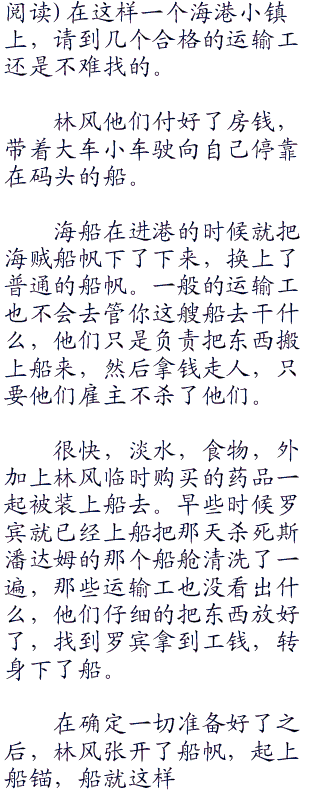 阅读) 在这样一个海港小镇
上，请到几个合格的运输工
还是不难找的。
林风他们付好了房钱，
带着大车小车驶向自己停靠
在码头的船。
海船在进港的时候就把
海贼船帆下了下来，换上了
普通的船帆。一般的运输工
也不会去管你这艘船去干什
么，他们只是负责把东西搬
上船来，然后拿钱走人，只
要他们雇主不杀了他们。
很快，淡水，食物，外
加上林风临时购买的药品一
起被装上船去。早些时候罗
宾就已经上船把那天杀死斯
潘达姆的那个船舱清洗了一
遍，那些运输工也没看出什
么，他们仔细的把东西放好
了，找到罗宾拿到工钱，转
身下了船。
在确定一切准备好了之
后，林风张开了船帆，起上
船锚，船就这样